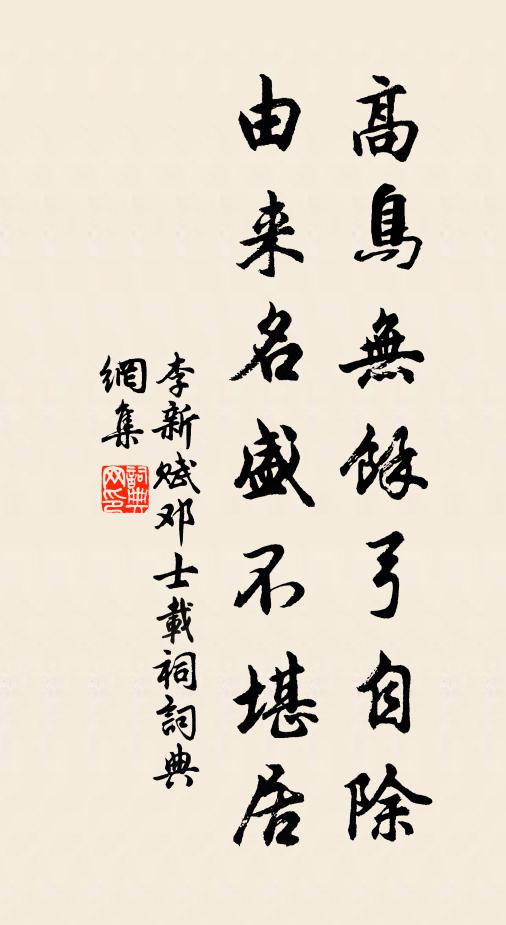 高鳥無餘弓自除
由来名盛不堪居
李新賦邓士載祠詞典
網集
詞典網印